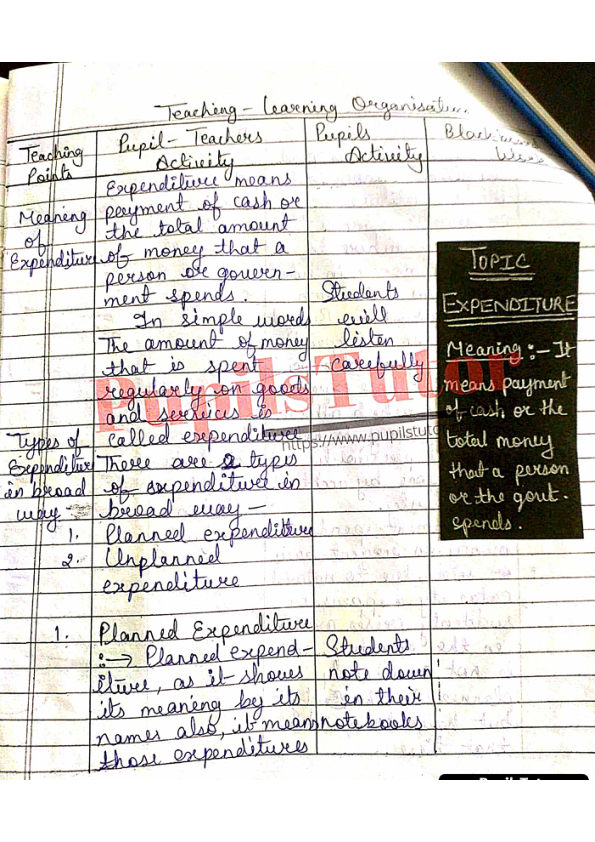 Teaching - Learning Organisat...
Teaching Points
Pupil-Teachers Activity
Pupils Activity
Meaning
of
Expenditure
Expenditure means
payment of cash or
the total amount
of money that a
person or govern-
ment spends.
In simple words
The amount of money
that is spent
regularly on goods
and services is
called expenditure
Students
will
listen
carefully
TOPIC
EXPENDITURE
Meaning :- It
means payment
of cash or the
total money
that a person
or the govt.
spends.
Pupils Tutor
https://www.pupilstuto
Types of
Expenditure
in broad
way -
There are 2 types
of expenditure in
broad way -
1. Planned expenditure
2. Unplanned
expenditure
1. Planned Expenditure
:-> Planned expend-
iture, as it shows
its meaning by its
names also, it means
those expenditures
Students
note down
in their
notebooks